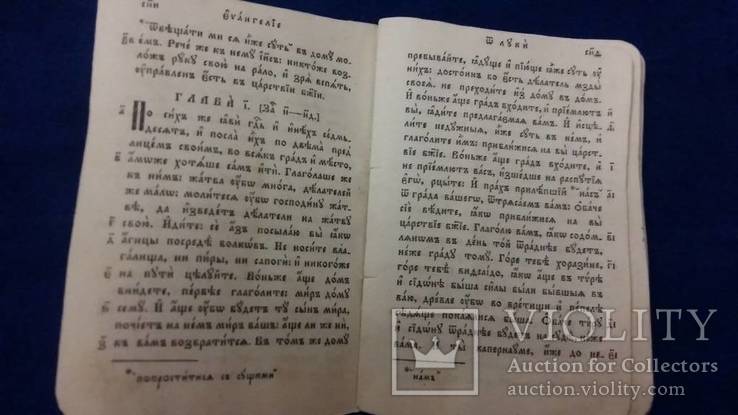 си҃и
Єѵⷢ҇а́нгелїе
ѿвѣща́ти ми ся и҆̀же сꙋ́ть въ домꙋ̀ мо-
е́мъ. Рече́ же къ немꙋ̀ і҆и҃съ: никто́же воз-
ло́жъ рꙋ́кꙋ свою̀ на ра́ло, и҆ зря̀ вспя́ть,
ᲂу҆пра́вленъ є҆́сть въ ца́рствїи бж҃їи.
ГЛАВА̀ і҃.
По си́хъ же ꙗ҆вѝ гд҇ь и҆ и҆нѣ́хъ се́дмь-
деся́тъ, и҆ посла̀ и҆̀хъ по двѣма̀ пред
лице́мъ свои́мъ, во вся́къ гра́дъ и҆ мѣ́сто,
а҆́може хотя́ше са́мъ и҆тѝ. Глаго́лаше же
къ ни́мъ: жа́тва ᲂу҆́бѡ мно́га, дѣ́лателей
же ма́лѡ: моли́теся ᲂу҆́бѡ господи́нꙋ жа́т-
вѣ, да и҆зведе́тъ дѣ́латели на жа́твꙋ
свою̀. И҆ди́те: сѐ а҆́зъ посыла́ю вы̀ ꙗ҆́кѡ
а҆́гнцы посредѣ̀ волкѡ́въ. Не носи́те вла-
га́лища, ни пи́ры, ни сапогѝ: и҆ никого́же
на пꙋтѝ цѣлꙋ́йте. Во́ньже а҆́ще до́мъ
вни́дете, пе́рвѣе глаго́лите: ми́ръ до́мꙋ
семꙋ̀. И҆ а҆́ще ᲂу҆́бѡ бꙋ́детъ тꙋ̀ сы́нъ ми́ра,
почі́етъ на не́мъ ми́ръ ва́шъ: а҆́ще ли же ни,
къ ва́мъ возврати́тся. Въ то́мъ же домꙋ̀
*попрости́тися съ сꙋ́щими
Ѿ лꙋкѝ
си҃д
пребыва́йте, ꙗ҆дꙋ́ще и҆ пїю́ще ꙗ҆́же сꙋ́ть ᲂу҆
ни́хъ: досто́инъ бо є҆́сть дѣ́латель мзды̀
своея̀. не преходи́те и҆з до́мꙋ въ до́мъ.
И҆ во́ньже а҆́ще гра́дъ вхо́дите, и҆ прїе́млютъ
вы, ꙗ҆ди́те предлага́емая ва́мъ. И҆ и҆сцѣ-
ли́те недꙋ́жныя, и҆̀же сꙋ́ть въ не́мъ, и҆
глаго́лите и҆̀мъ: прибли́жися на вы̀ ца́рст-
вїе бж҃їе. Во́ньже а҆́ще гра́дъ вхо́дите, и҆
не прїе́млютъ ва́съ, и҆зше́дше на распꙋ́тїя
є҆гѡ̀, рцы́те: И҆ пра́хъ прилѣ́пшїй *на́съ
ѿ гра́да ва́шегѡ, ѿтряса́емъ ва́мъ: ѻ҆ба́че
сїѐ вѣ́дите, ꙗ҆́кѡ прибли́жися на вы̀
ца́рствїе бж҃їе. Глаго́лю ва́мъ, ꙗ҆́кѡ содо́м-
ляномъ въ де́нь то́й ѿра́днѣе бꙋ́детъ,
не́же гра́дꙋ томꙋ̀. Го́ре тебѣ̀ хорази́не,
го́ре тебѣ̀ видсаі́до, ꙗ҆́кѡ а҆́ще въ тѵ́рѣ
и҆ сїдѡ́нѣ бы́ша си́лы бы́ли бы́вшыя въ
ва́ю, дре́вле ᲂу҆́бѡ во вре́тищи и҆ пе́пелѣ
сѣдя́ще пока́ялися бы́ша. Ѻ҆ба́че тѵ́рꙋ
и҆ сїдѡ́нꙋ ѿра́днѣе бꙋ́детъ на сꙋдѣ̀, не́же
ва́ма. И҆ ты̀ каперна́ꙋме, и҆́же до не-
*на́мъ
VIOLITY
Auction for Collectors
auction.violity.com